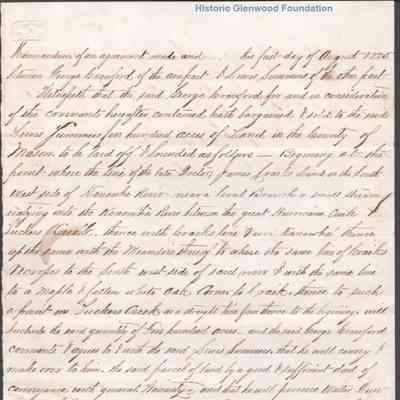 Historic Glenwood Foundation
Memorandum of an agreement made and this first day of August 1825
between George Crawford of the one part & Lewis Summers of the other part
Witnesseth that the said George Crawford for and in consideration
of the covenants hereafter contained hath bargained & sold to the said
Lewis Summers five hundred acres of Land in the County of
Mason to be laid off & bounded as follows — Beginning at the
point where the line of the late Doctor James Craik's land on the South
West side of Kanawha River near a small Branch a small stream
emptying into the Kanawha River between the great Hurricane Creek &
Tuckers Creek, thence with Craiks line down Kanawha Thence
up the same with the Meanders thereof to where the same line of Craiks
crosses to the South west side of said river & with the same line
to a Maple & fallen white Oak Corner to Craik, thence to such
a point on Tuckers Creek as a straight line from thence to the beginning, will
include the said quantity of five hundred acres. and the said George Crawford
covenants & agrees to & with the said Lewis Summers, that he will convey &
make over to him, the said parcel of land by a good & sufficient deed of
conveyance with general Warranty, and that he will procure